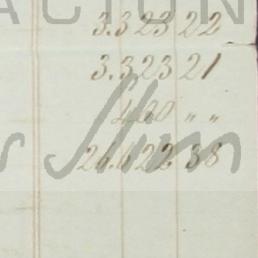 ACION
3.323 22
3.323 21
400 〃 〃
26.622 38